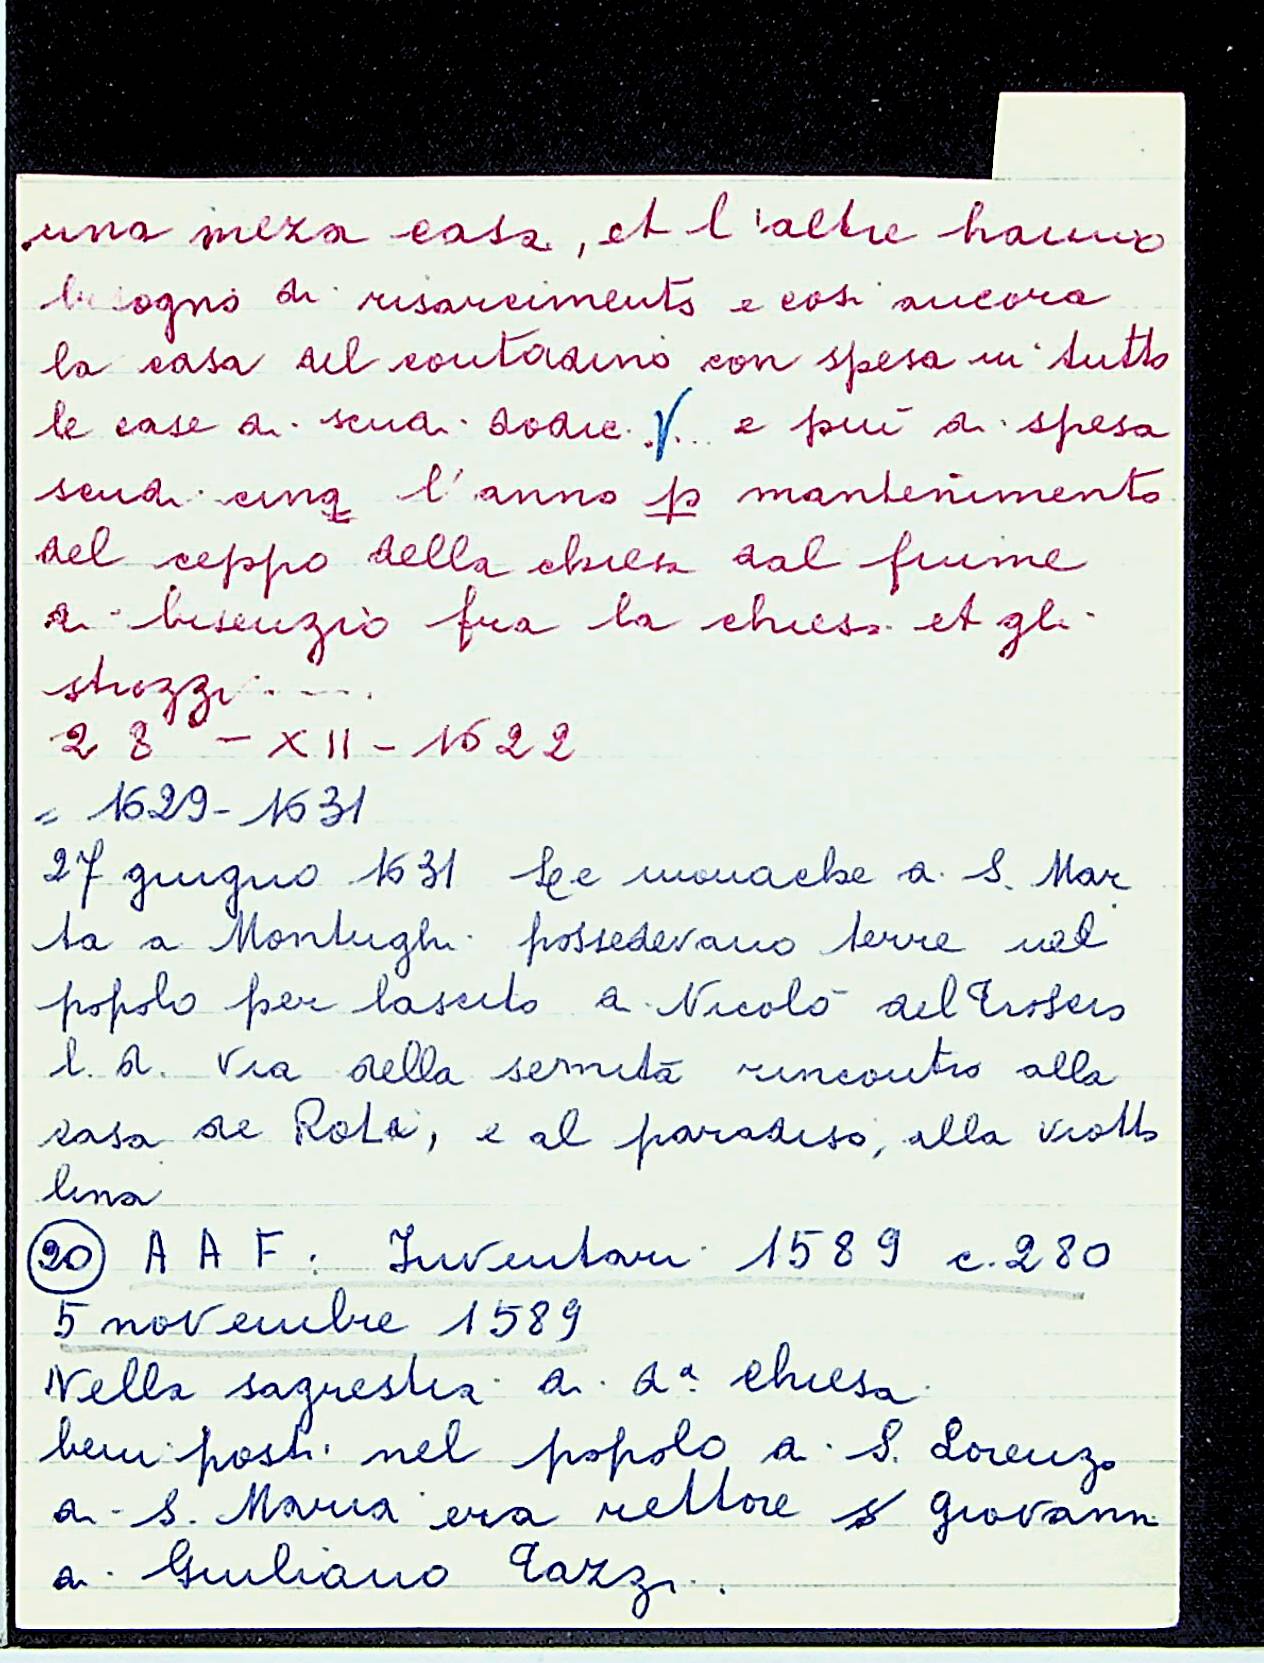 una meza casa, et l'altre hanno
bisogno di risarcimento e così ancora
la casa del contadino con spesa in tutto
le case di scudi dodic... e più di spesa
scudi cinq l'anno p mantenimento
del ceppo della chiesa dal fiume
di bisenzio fra la chiesa et gli
strozzi....
28 - XII - 1622
= 1629-1631
27 giugno 1631 Le monache di S. Mar
ta a Montughi possedevano terre nel
popolo per lascito di Nicolò del
l.d. Via della sernità rincontro alla
casa de Roti, e al paradiso, alla viotto
lina
20 A A F: Inventari 1589 c.280
5 novembre 1589
Nella sagrestia di dª chiesa
beni posti nel popolo di S. Lorenzo
di S. Maria era rettore s Giovanni
di Giuliano Tazzi.